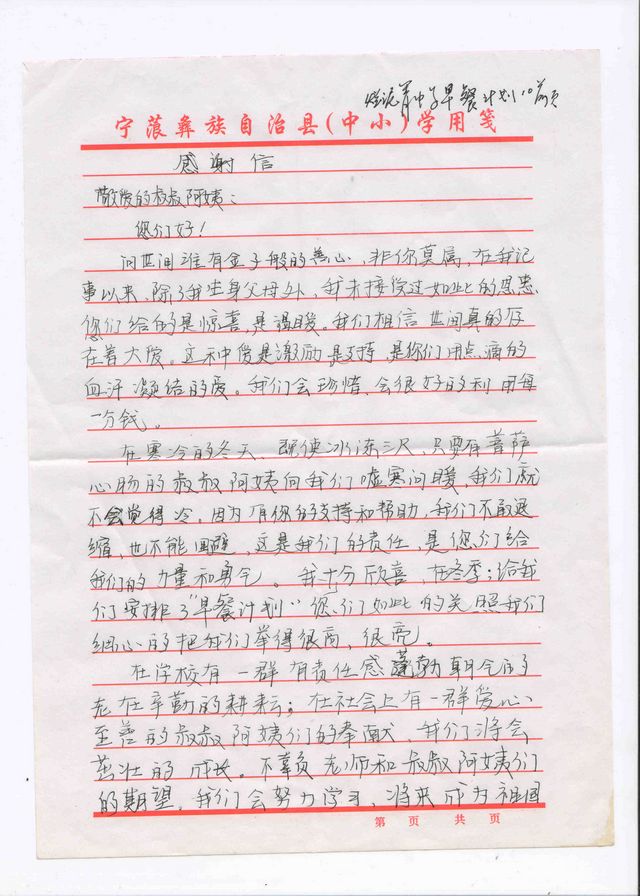 烂泥箐中学早餐计划10萳页
宁蒗彝族自治县(中小)学用笺
感谢信
敬爱的叔叔阿姨：
您们好！
问世间谁有金子般的善心，非你莫属，在我记
事以来，除了我生身父母外，我未接受过如此的恩惠
你们给的是惊喜，是温暖。我们相信世间真的存
在着大爱。这种爱是激励是支持，是你们用点滴的
血汗凝结的爱。我们会珍惜，会很好的利用每
一分钱。
在寒冷的冬天、既使冰冻三尺，只要有菩萨
心肠的叔叔阿姨向我们嘘寒问暖，我们就
不会觉得冷。因为有你的支持和帮助，我们不敢退
缩，也不能回避，这是我们的责任，是您们给
我们的力量和勇气。我十分欣喜，在冬季；给我
们安排了"早餐计划"您们如此的关照我们
细心的把我们举得很高，很亮。
在学校有一群有责任感蓬勃朝气的
老在辛勤的耕耘；在社会上有一群爱心
至善的叔叔阿姨们的奉献，我们将会
茁壮的成长。不辜负老师和叔叔阿姨们
的期望，我们会努力学习，将来成为祖国
第 页 共 页